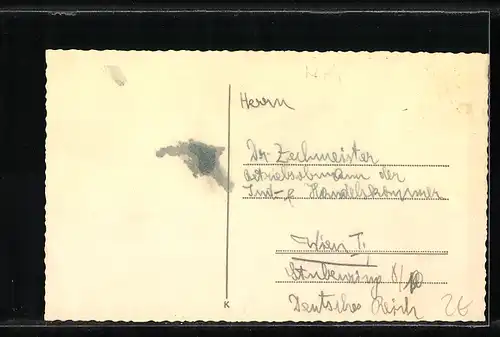 Herrn
Dr. Zechmeister
Betriebsobmann der
Ind- & Handelskammer
Wien I.
Stubenring 8/10
Deutsches Reich
2€
K